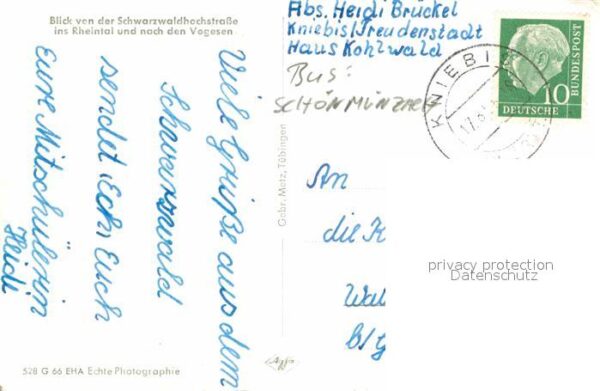 Blick von der Schwarzwaldhochstraße
ins Rheintal und nach den Vogesen
Viele Grüße aus dem
Schwarzwald
sendet Euch
Eure Mitschülerin
Heidi
528 G 66 EHA Echte Photographie
Gebr. Metz, Tübingen
Abs. Heidi Brückel
Kniebis/Freudenstadt
Haus Kohlwald
Bus:
SCHÖNMÜNZACH
KNIEBIS
17.8.
10
DEUTSCHE
BUNDESPOST
An
die K
Wal
b/g
privacy protection
Datenschutz
Agfa